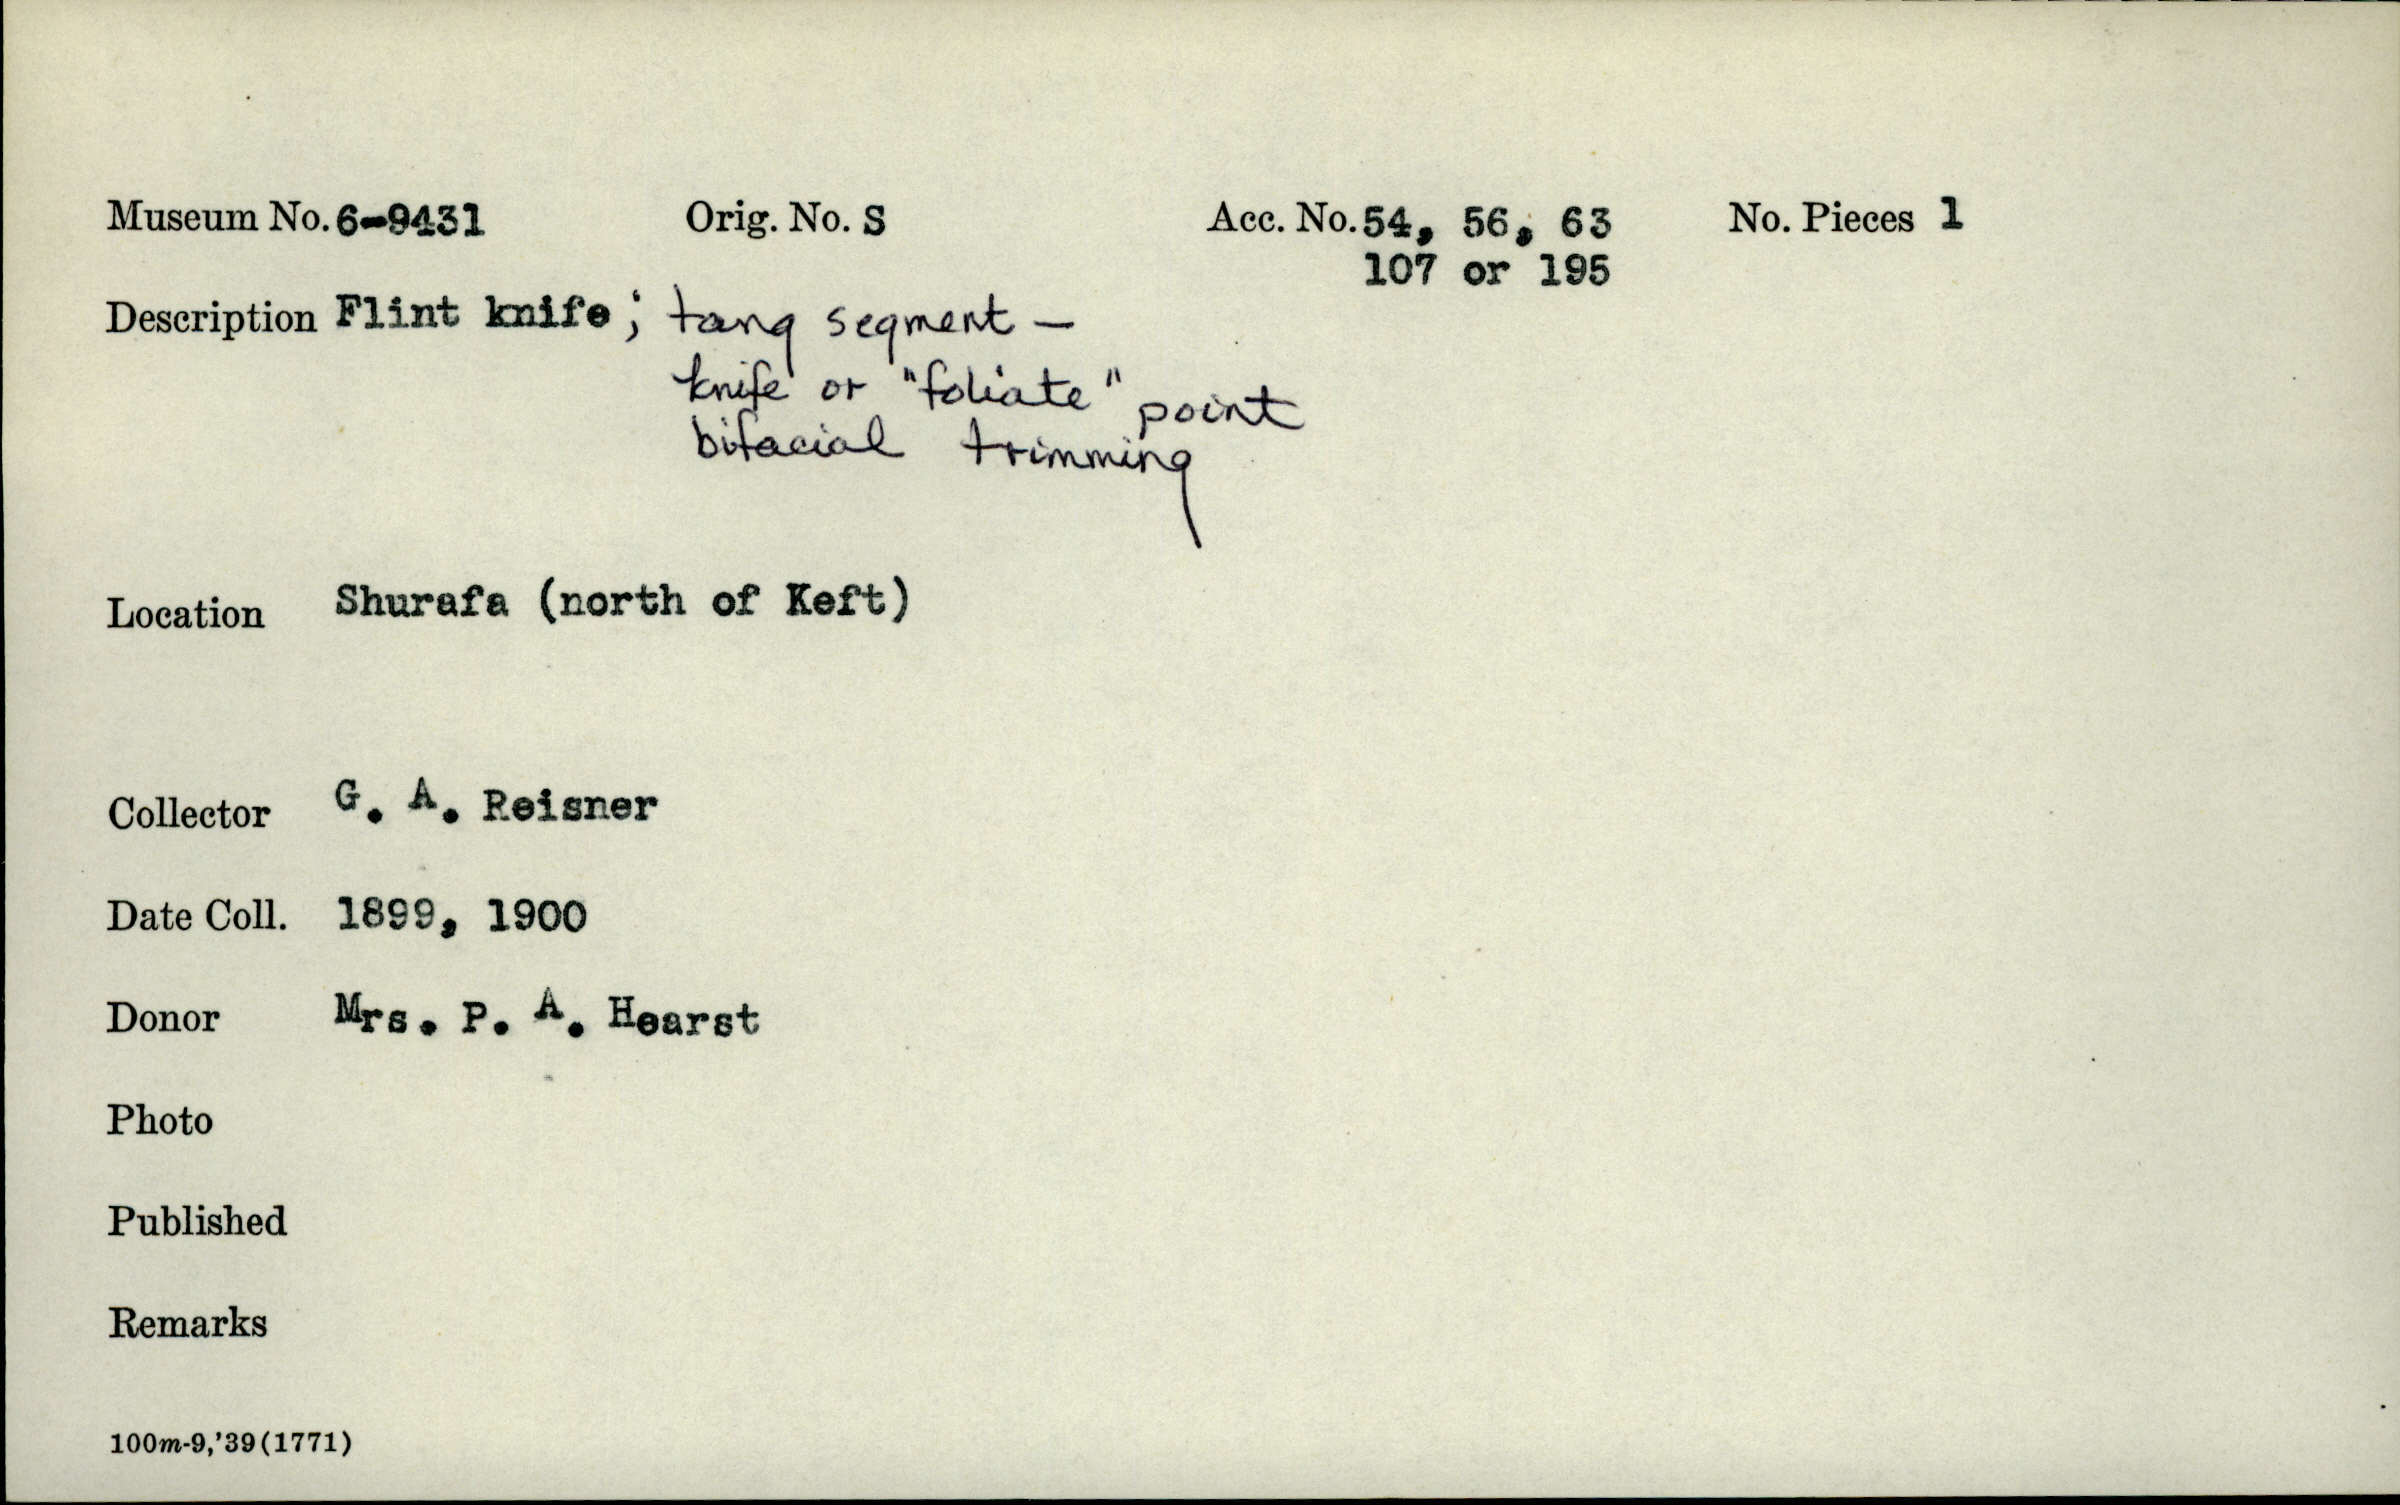 Museum No. 6-9431 Orig. No. S Acc. No. 54, 56, 63 No. Pieces 1
107 or 195
Description Flint knife; tang segment –
knife or "foliate" point
bifacial trimming
Location Shurafa (north of Keft)
Collector G. A. Reisner
Date Coll. 1899, 1900
Donor Mrs. P. A. Hearst
Photo
Published
Remarks
100m-9,'39(1771)